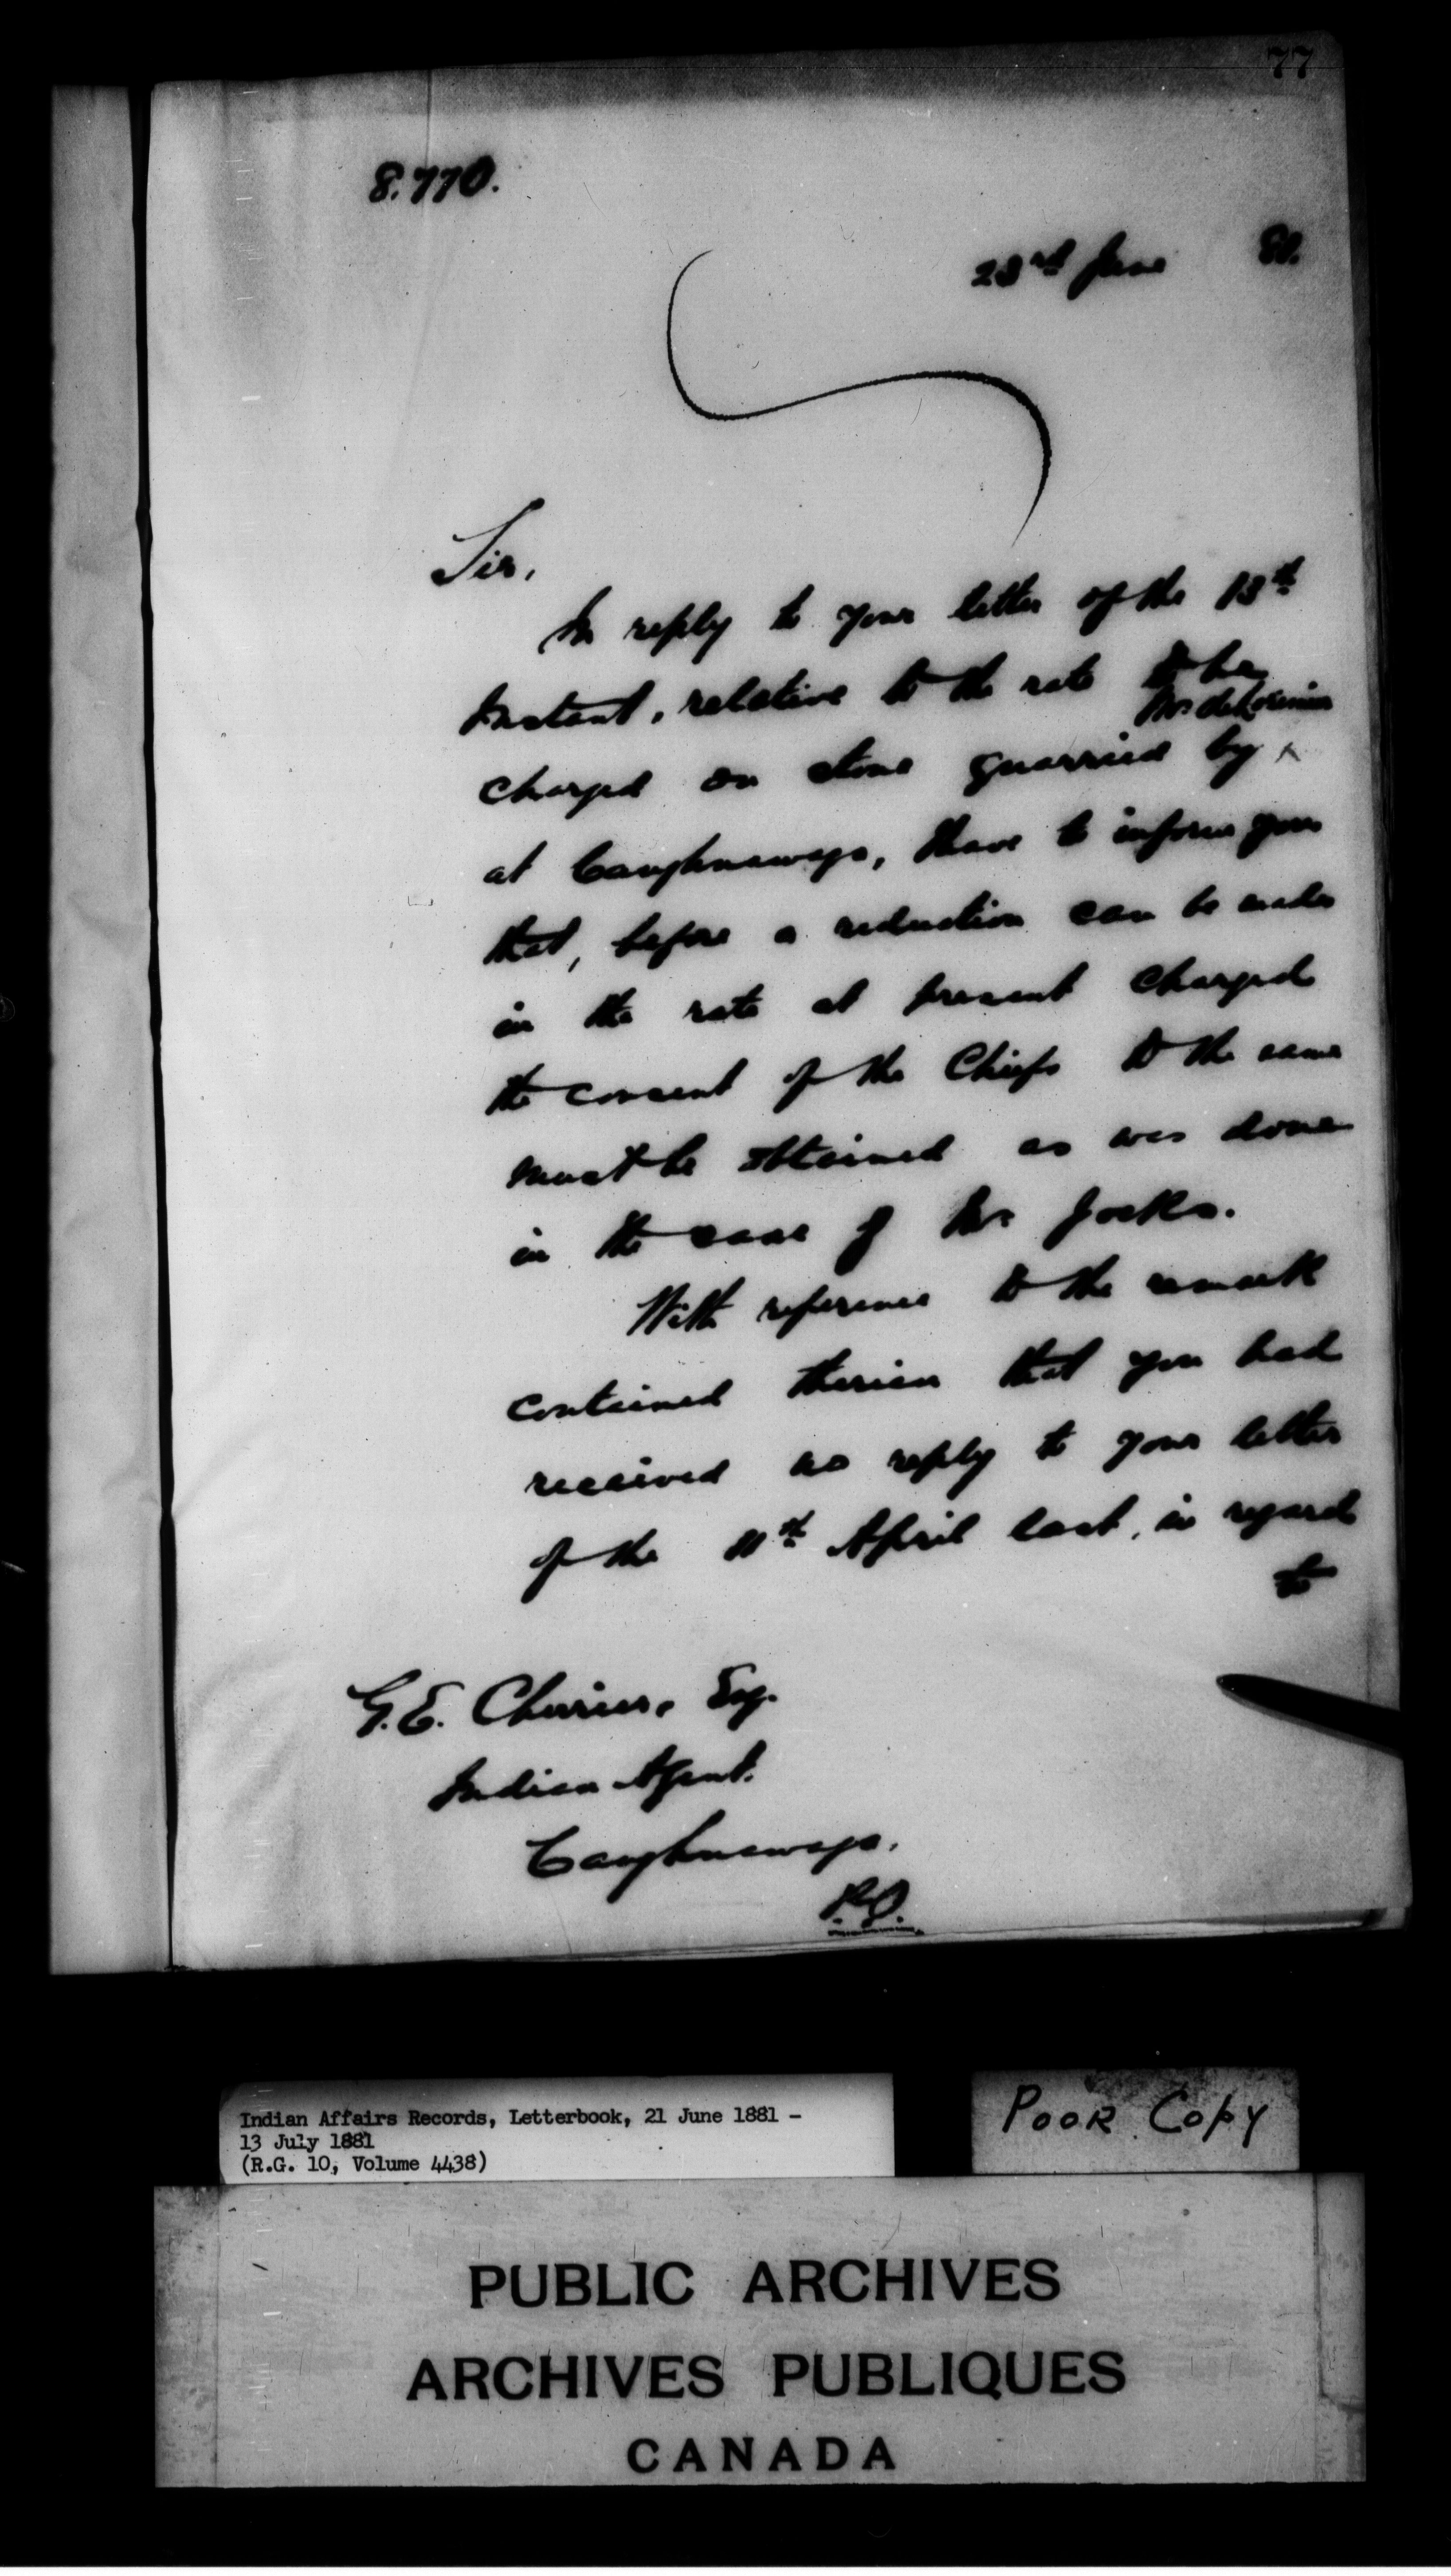 77
8.770.
23rd June 81.
Sir,
In reply to your letter of the 13th
instant, relative to the rate to be
Mr deLorimier
charged on stone quarried by ^
at Caughnawaga, I have to inform you
that, before a reduction can be made
in the rate at present charged
the consent of the Chiefs to the same
must be obtained as was done
in the case of Mr Jocks.
With reference to the remark
contained therein that you had
received no reply to your letter
of the 11th April last, in regard
to
G.E. Cherrier, Esq.
Indian Agent.
Caughnawaga.
P.Q.
Indian Affairs Records, Letterbook, 21 June 1881 -
13 July 1881
(R.G. 10, Volume 4438)
POOR COPY
PUBLIC ARCHIVES
ARCHIVES PUBLIQUES
CANADA